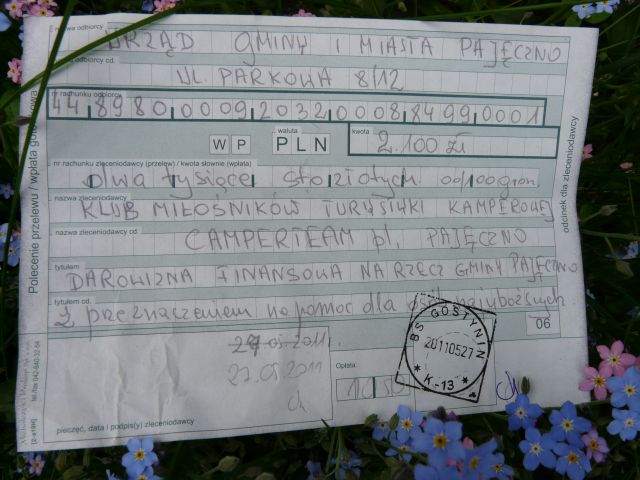 nazwa odbiorcy
URZĄD GMINY I MIASTA PAJĘCZNO
nazwa odbiorcy cd.
UL. PARKOWA 8/12
nr rachunku odbiorcy
44 8980 0009 2032 0008 8499 0001
waluta
kwota
WP PLN 2.100 zł
nr rachunku zleceniodawcy (przelew) / kwota słownie (wpłata)
dwa tysiące sto złotych 00/100 gron.
nazwa zleceniodawcy
KLUB MIŁOŚNIKÓW TURYSTYKI KAMPEROWEJ
nazwa zleceniodawcy cd.
CAMPERTEAM pl. PAJĘCZNO
tytułem
DAROWIZNA FINANSOWA NA RZECZ GMINY PAJĘCZNO
tytułem cd.
z przeznaczeniem na pomoc dla osób najuboższych
06
27.05.2011
Opłata:
BS GOSTYNIN
20110527
* K-13 *
pieczęć, data i podpis(y) zleceniodawcy
Polecenie przelewu / wpłata
odcinek dla zleceniodawcy
tel./fax 042-640-32-64